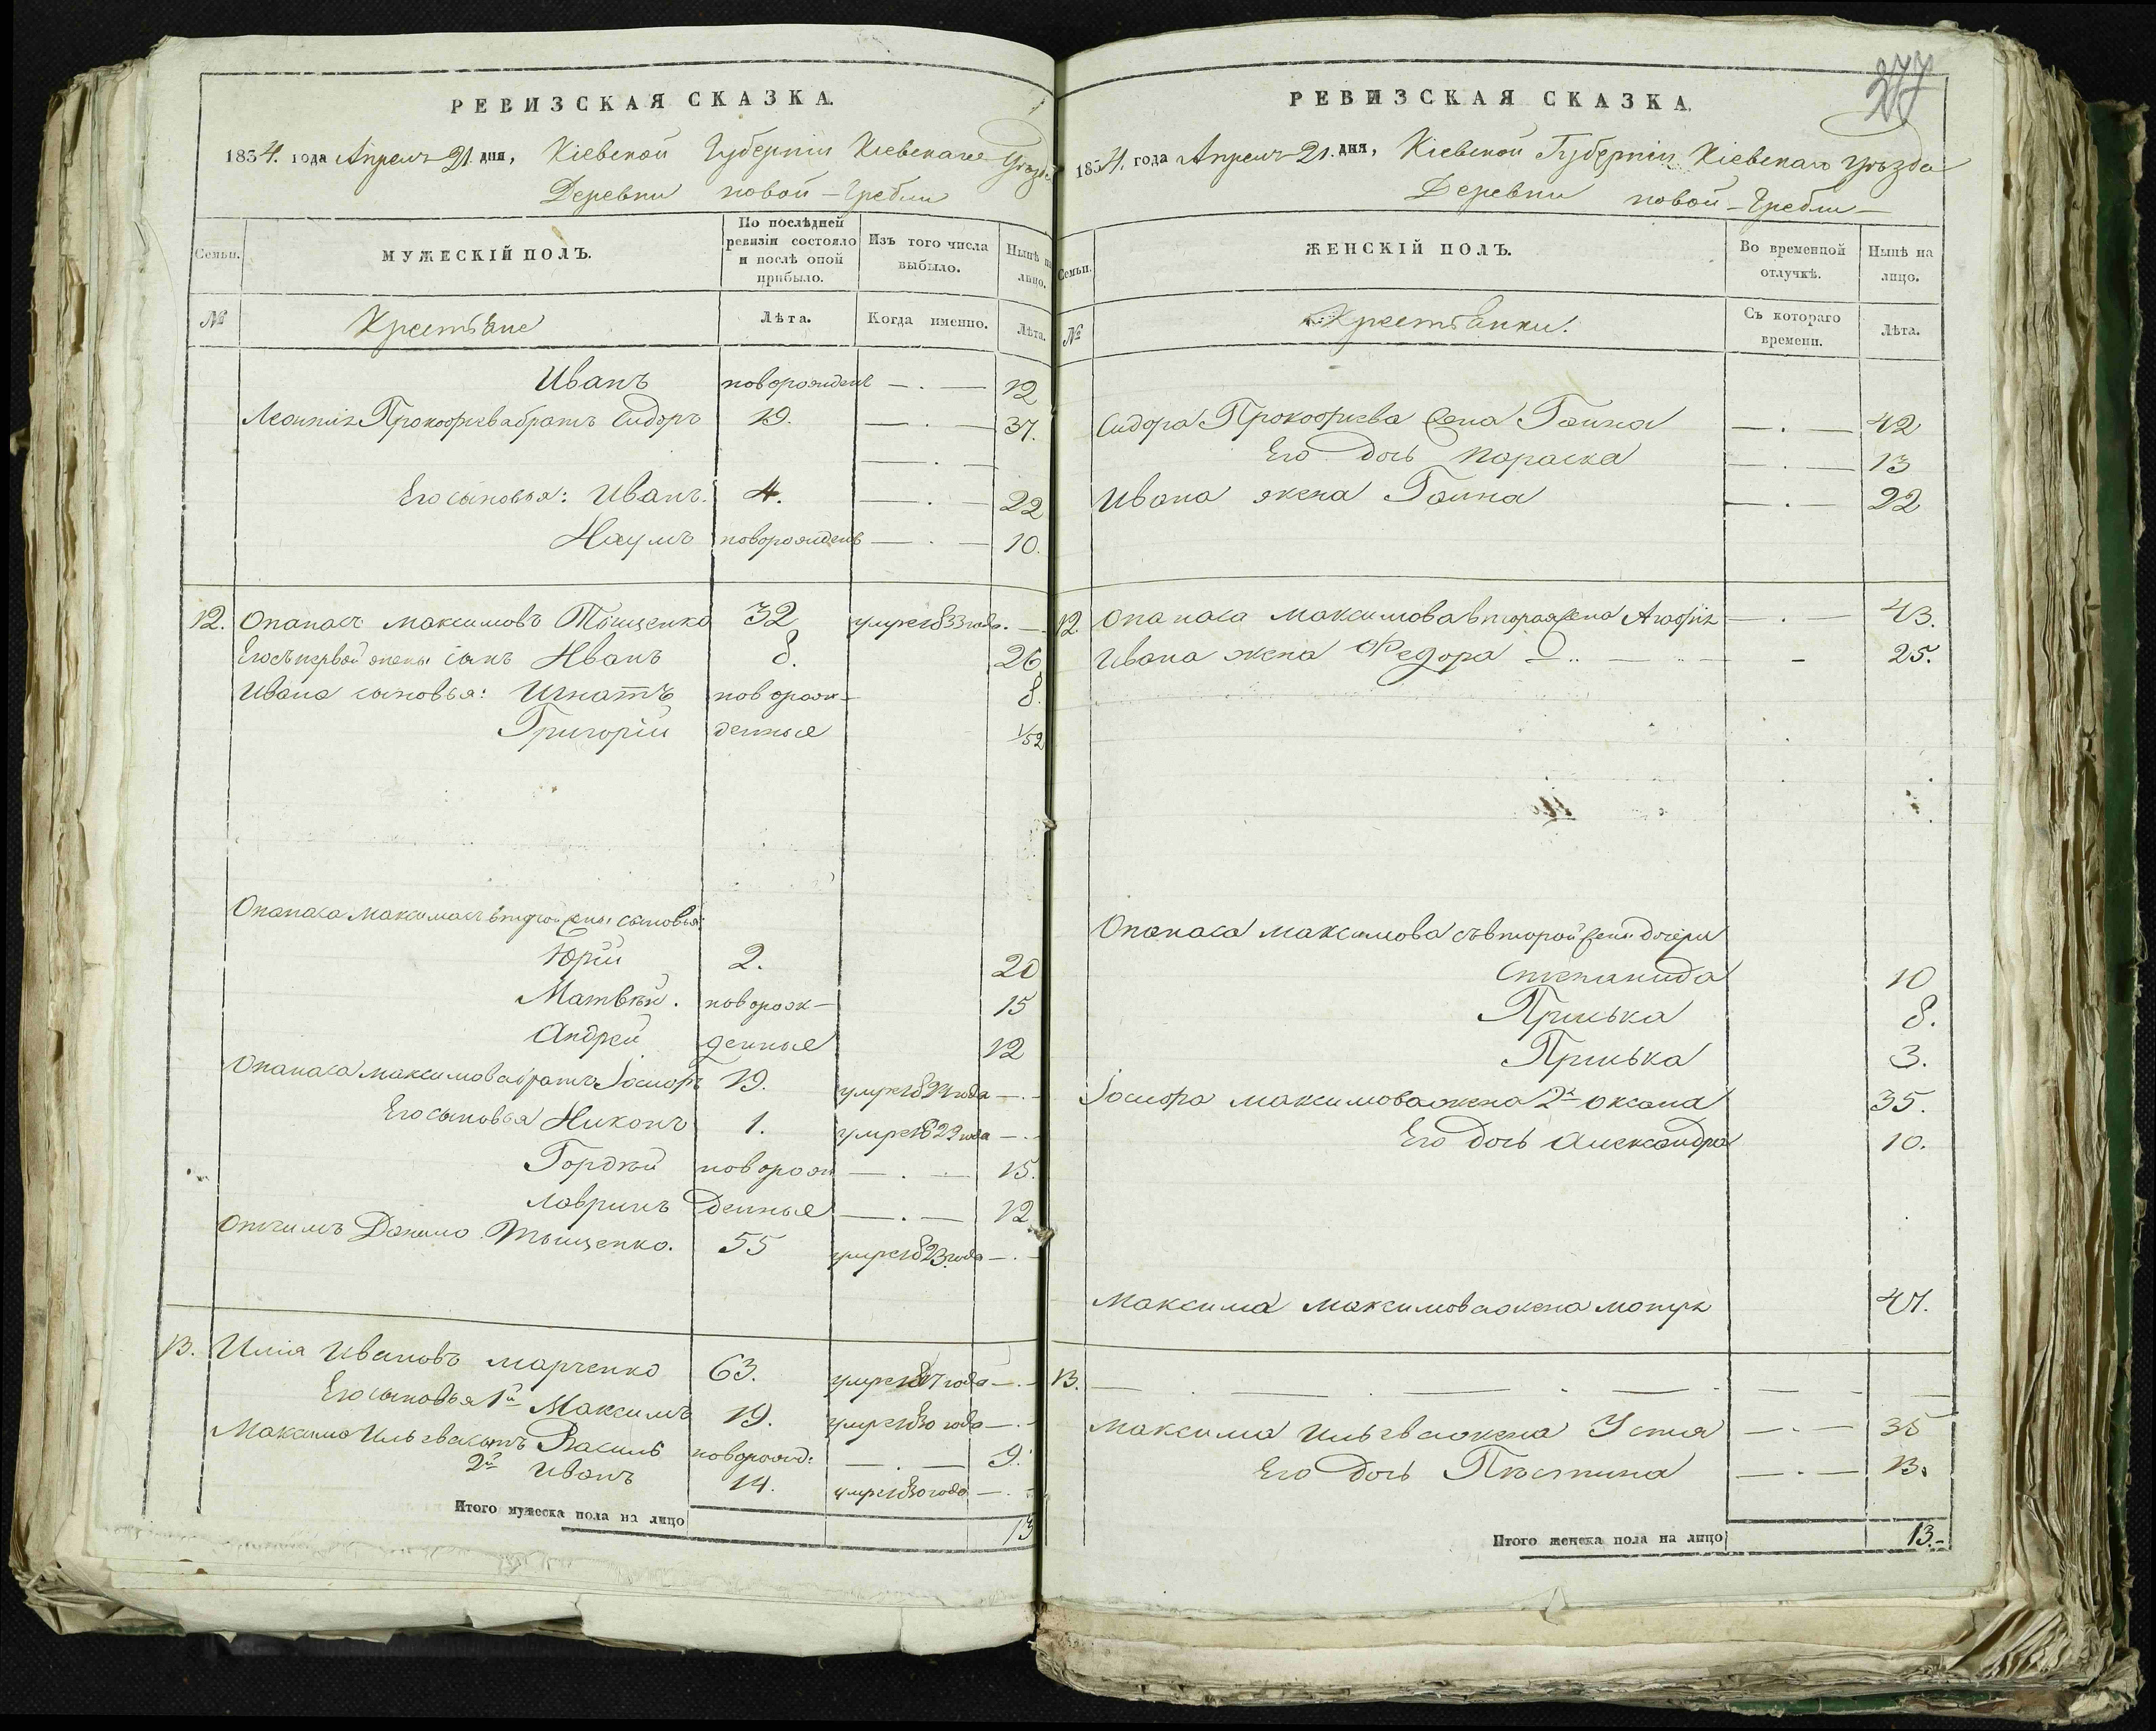 РЕВИЗСКАЯ СКАЗКА.
1834. года Апреля 21. дня, Кіевской Губерніи Кіевскаго Уѣзда
Деревни новой-Гребли
Семьи. МУЖЕСКІЙ ПОЛЪ. По послѣдней ревизіи состояло и послѣ оной прибыло. Изъ того числа выбыло. Нынѣ на лицо.
№ Крестьяне Лѣта. Когда именно. Лѣта.
Иванъ новорожденъ 12
Леонтія Прокофіева братъ Сидоръ 19. 37.
Его сыновья: Иванъ. 4. 22
Наумъ новорожденъ 10.
12. Опанасъ Максимовъ Тыщенко 32 умре 1833 года.
Его съ первой жены сынъ Иванъ 8. 26
Ивана сыновья: Игнатъ новорож- 8.
Григорій денные 1/52
Опанаса Максимова съ второй жены сыновья:
Юрій 2. 20
Матвѣй. новорож- 15
Андрей денные 12
Опанаса Максимова братъ 19. умре года
Его сыновья Никонъ 1. умре 1822 года
Гордѣй новорож 15.
Лавринъ денные 12
Отчимъ Данило Тыщенко. 55 умре 1823 года
13. Илія Ивановъ Марченко 63. умре года
Его сыновья 1й Максимъ 19. умре 1830 года
Максима Ильева сынъ Василь новорожд: 9.
2й Иванъ 14. умре 1830 года
Итого мужеска пола на лицо 13
277
РЕВИЗСКАЯ СКАЗКА.
1834. года Апреля 21. дня, Кіевской Губерніи Кіевскаго Уѣзда
Деревни новой-Гребли
Семьи. ЖЕНСКІЙ ПОЛЪ. Во временной отлучкѣ. Нынѣ на лицо.
№ Крестьянки. Съ котораго времени. Лѣта.
Сидора Прокофіева жена Ганна 42
Его дочь Параска 13
Ивана жена Ганна 22
12. Опанаса Максимова вторая жена Агафія 43.
Ивана жена Федора 25.
Опанаса Максимова съ второй жены дочери
Степанида 10
Принька 8.
Принька 3.
Максимова жена 2я Оксана 35.
Его дочь Александра 10.
Максима Максимова жена Мотря 47.
13.
Максима Ильева жена Устя 35
Его дочь 13.
Итого женска пола на лицо 13.-